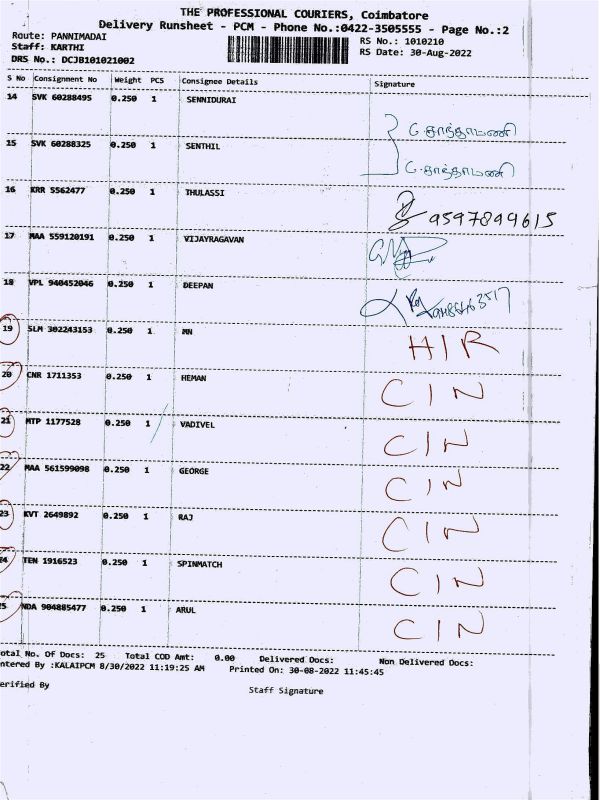 THE PROFESSIONAL COURIERS, Coimbatore
Delivery Runsheet - PCM - Phone No.:0422-3505555 - Page No.:2
Route: PANNIMADAI
RS No.: 1010210
Staff: KARTHI
RS Date: 30-Aug-2022
DRS No.: DCJB101021002
S No Consignment No Weight PCS Consignee Details Signature
14 SVK 60288495 0.250 1 SENNIDURAI
15 SVK 60288325 0.250 1 SENTHIL
16 KRR 5562477 0.250 1 THULASSI 9597899615
17 MAA 559120191 0.250 1 VIJAYRAGAVAN
18 VPL 940452046 0.250 1 DEEPAN
19 SLM 302243153 0.250 1 MN HIR
20 CNR 1711353 0.250 1 HEMAN CIN
21 MTP 1177528 0.250 1 VADIVEL CIN
22 MAA 561599098 0.250 1 GEORGE CIN
23 KVT 2649892 0.250 1 RAJ CIN
24 TEN 1916523 0.250 1 SPINMATCH CIN
25 NDA 904885477 0.250 1 ARUL CIN
otal No. Of Docs: 25 Total COD Amt: 0.00 Delivered Docs: Non Delivered Docs:
ntered By :KALAIPCM 8/30/2022 11:19:25 AM Printed On: 30-08-2022 11:45:45
erified By
Staff Signature